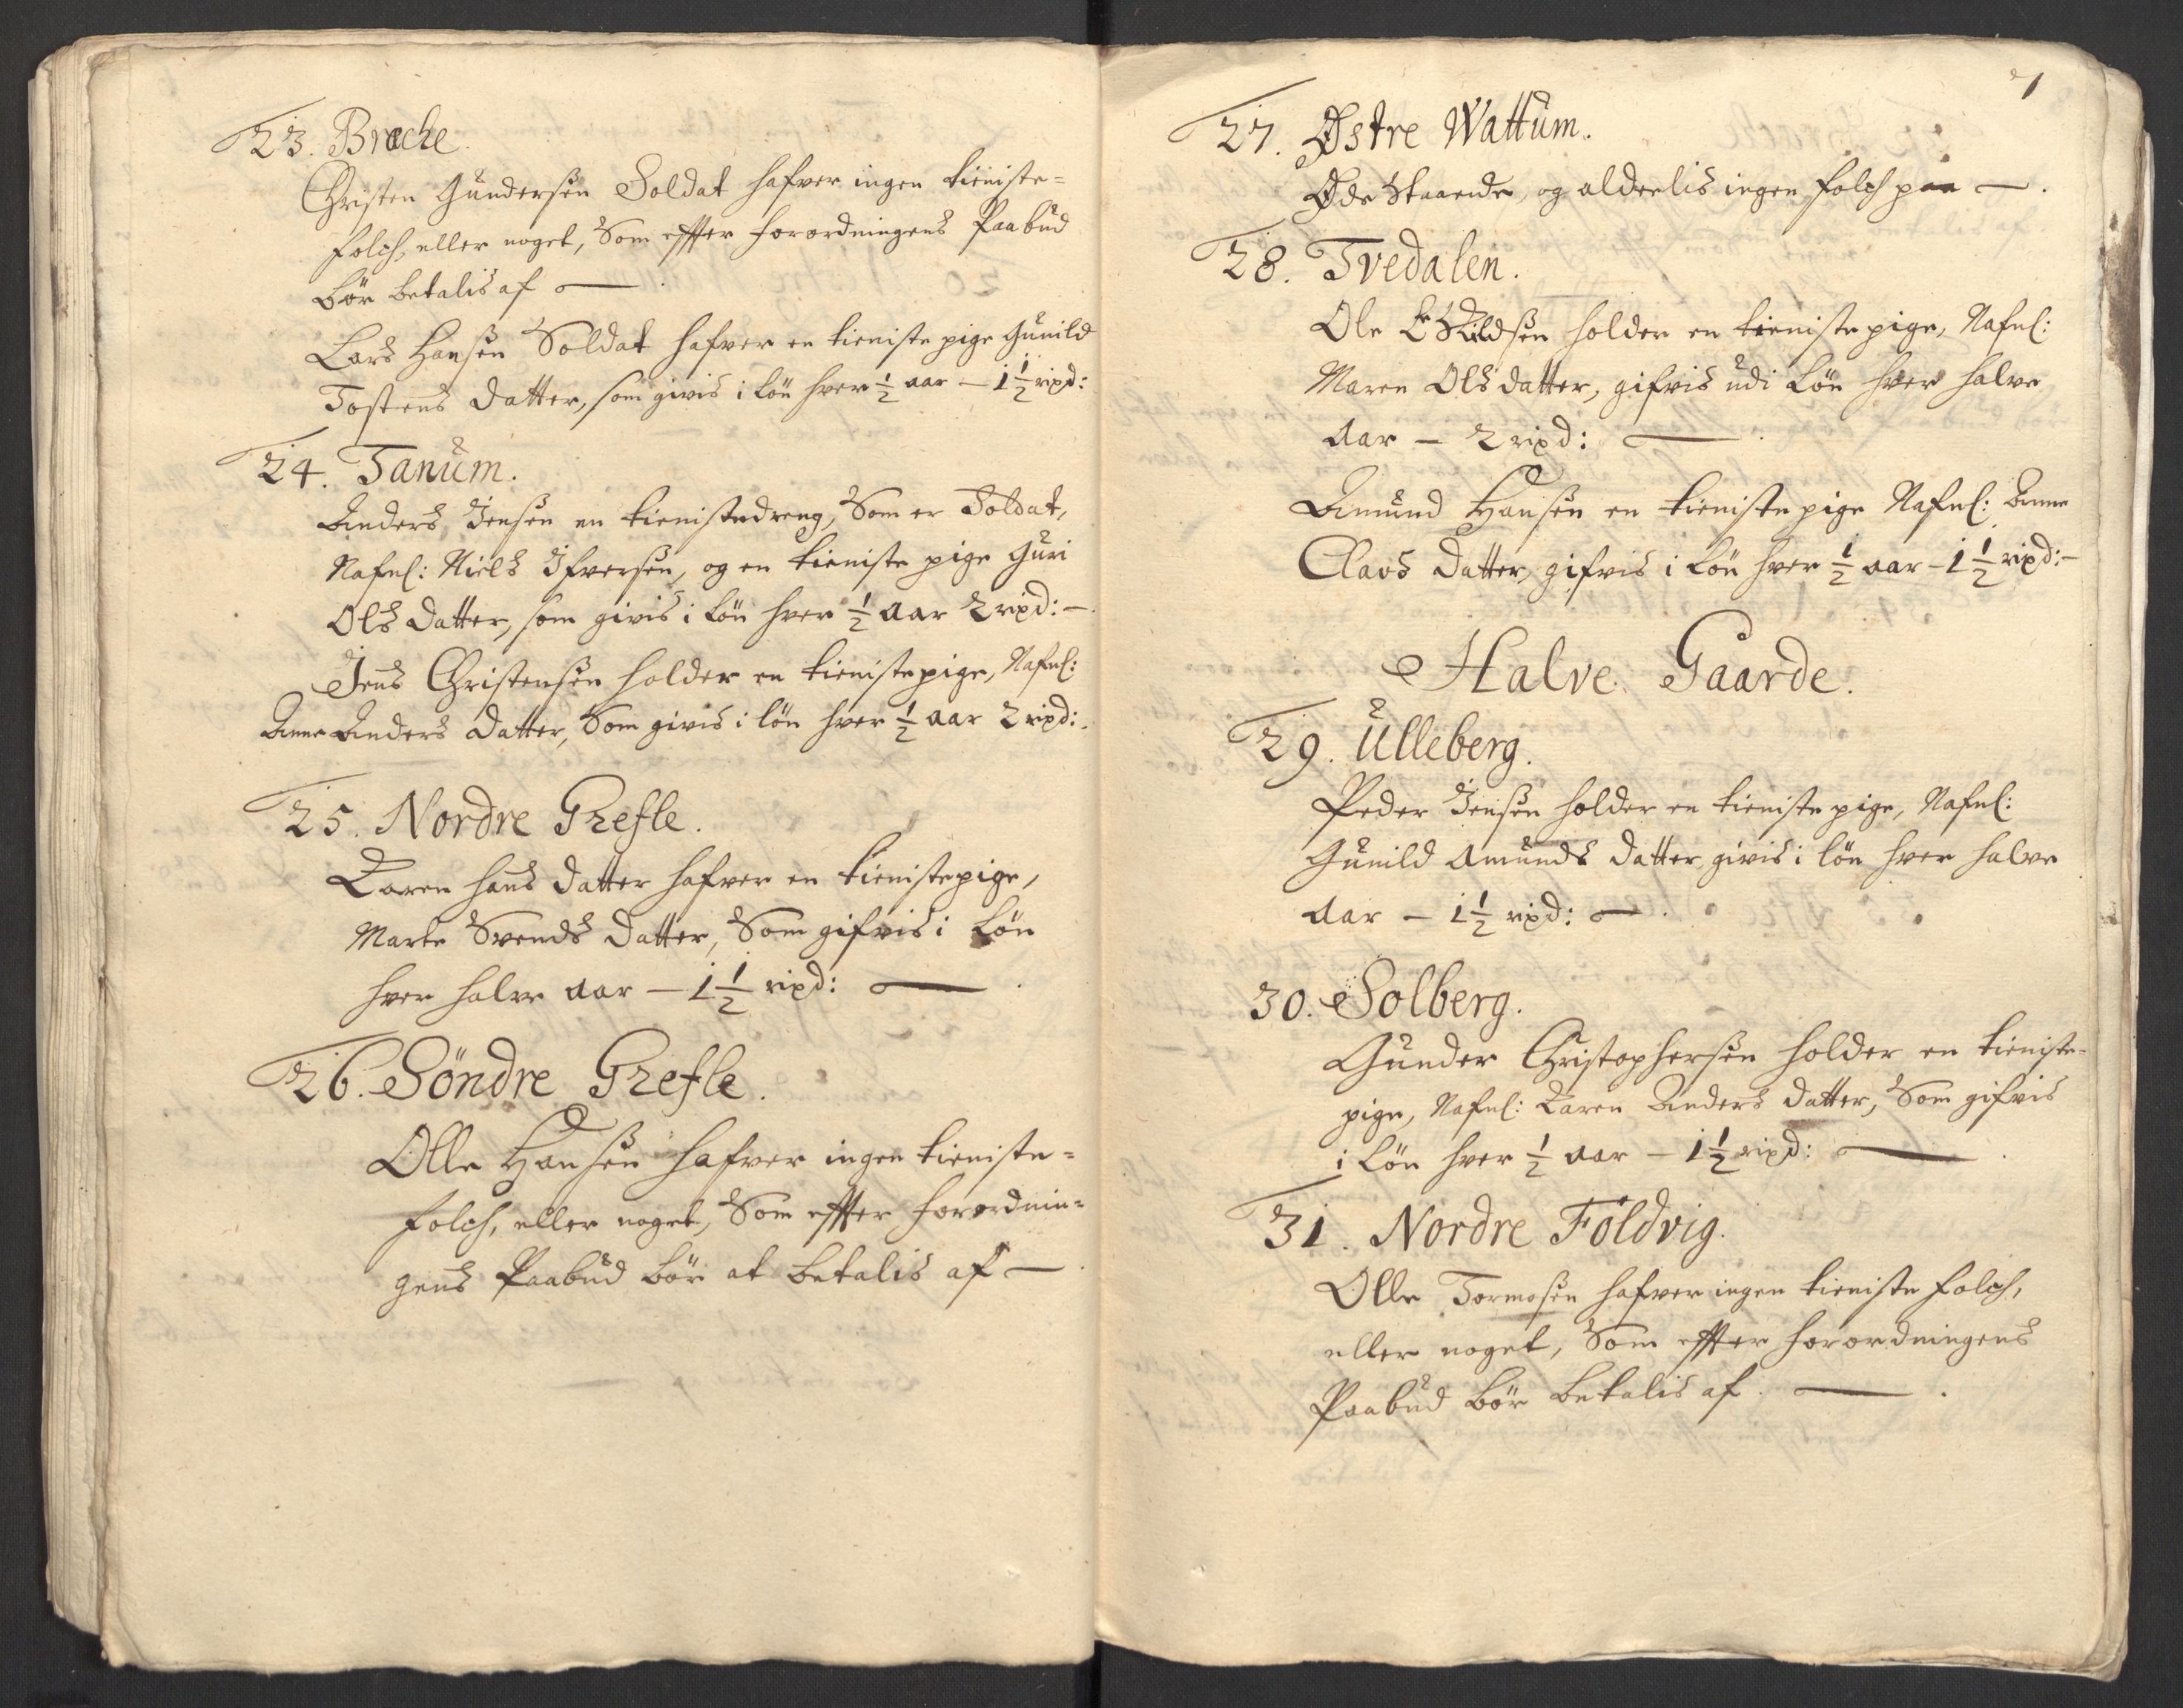 23. Breche.
Christen Gundersøn Soldat hafver ingen tieniste=
folch, eller noget, Som effter forordningens Paabud
bør betalis af —
Lars Hansøn Soldat hafver en tieniste pige Gunild
Tostens datter, som givis i løn hver ½ aar — 1½ rixd:
24. Tanum.
Anders Jensøn en tienistedreng, Som er Soldat,
Nafnl: Niels Ifversøn, og en tieniste pige Guri
Ols datter, som givis i løn hver ½ aar 2 rixd: —
Jens Christensøn holder en tienistepige, Nafnl:
Anne Anders datter, Som givis i løn hver ½ aar 2 rixd:
25. Nordre Grefle.
Karen hans datter hafver en tienistepige,
Marte Svends datter, Som gifvis i løn
hver halve aar — 1½ rixd: —
26. Söndre Grefle.
Olle Hansøn hafver ingen tieniste=
folch, eller noget, Som effter forordnin=
gens Paabud bør at betalis af —
7
27. Østre Wattum.
Øde Staaende, og alderlis ingen folch paa —.
28. Tvedalen.
Ole Eskildsøn holder en tieniste pige, Nafnl:
Maren Ols datter, gifvis udi løn hver halve
Aar — 2 rixd: —
Amund Hansøn en tieniste pige Nafnl: Anne
Clavs datter, gifvis i løn hver ½ aar — 1½ rixd: —
Halve Gaarde.
29. Ulleberg.
Peder Jensøn holder en tieniste pige, Nafnl:
Gunild Amunds datter, givis i løn hver halve
Aar — 1½ rixd: —.
30. Solberg.
Gunder Christophersøn holder en tieniste-
pige, Nafnl: Karen Anders datter, Som gifvis
i løn hver ½ aar — 1½ rixd: —
31. Nordre Foldvig.
Olle Tormosøn hafver ingen tieniste folch,
eller noget, Som effter forordningens
Paabud bør betalis af. —.